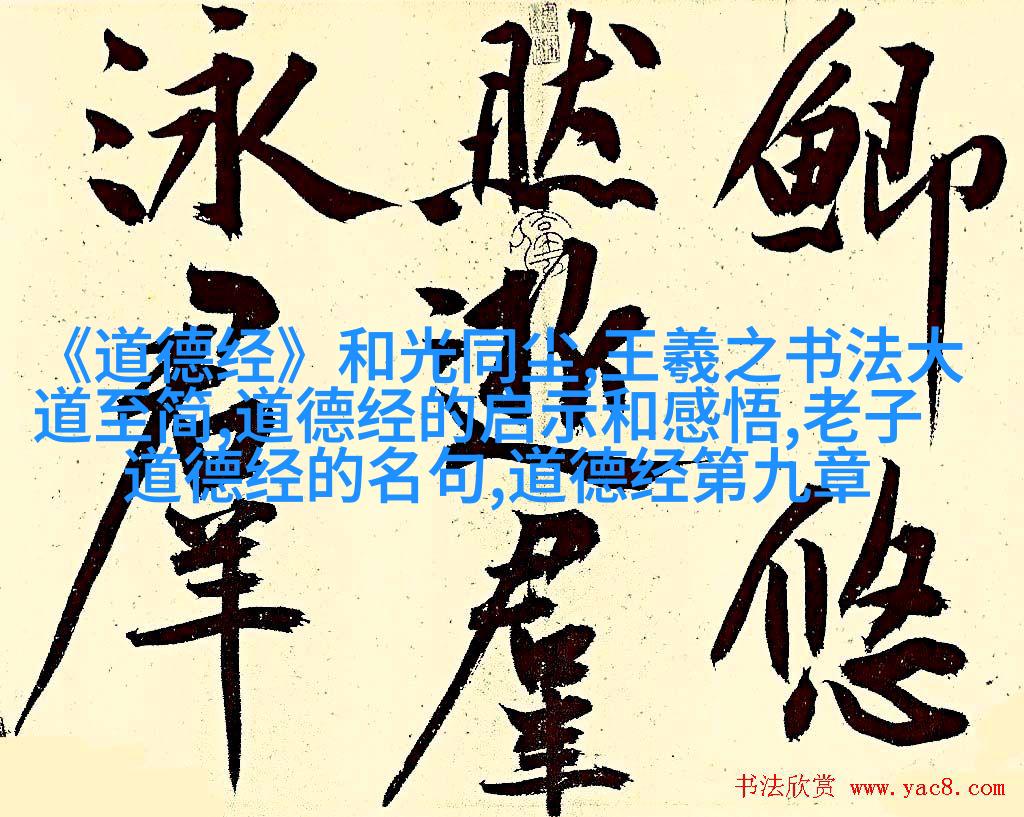 悠
然 群
泳 群
《道德经》和光同尘,王羲之书法大
道至简,道德经的启示和感悟,老子
道德经的名句,道德经第九章
书法欣赏 www.yac8.com